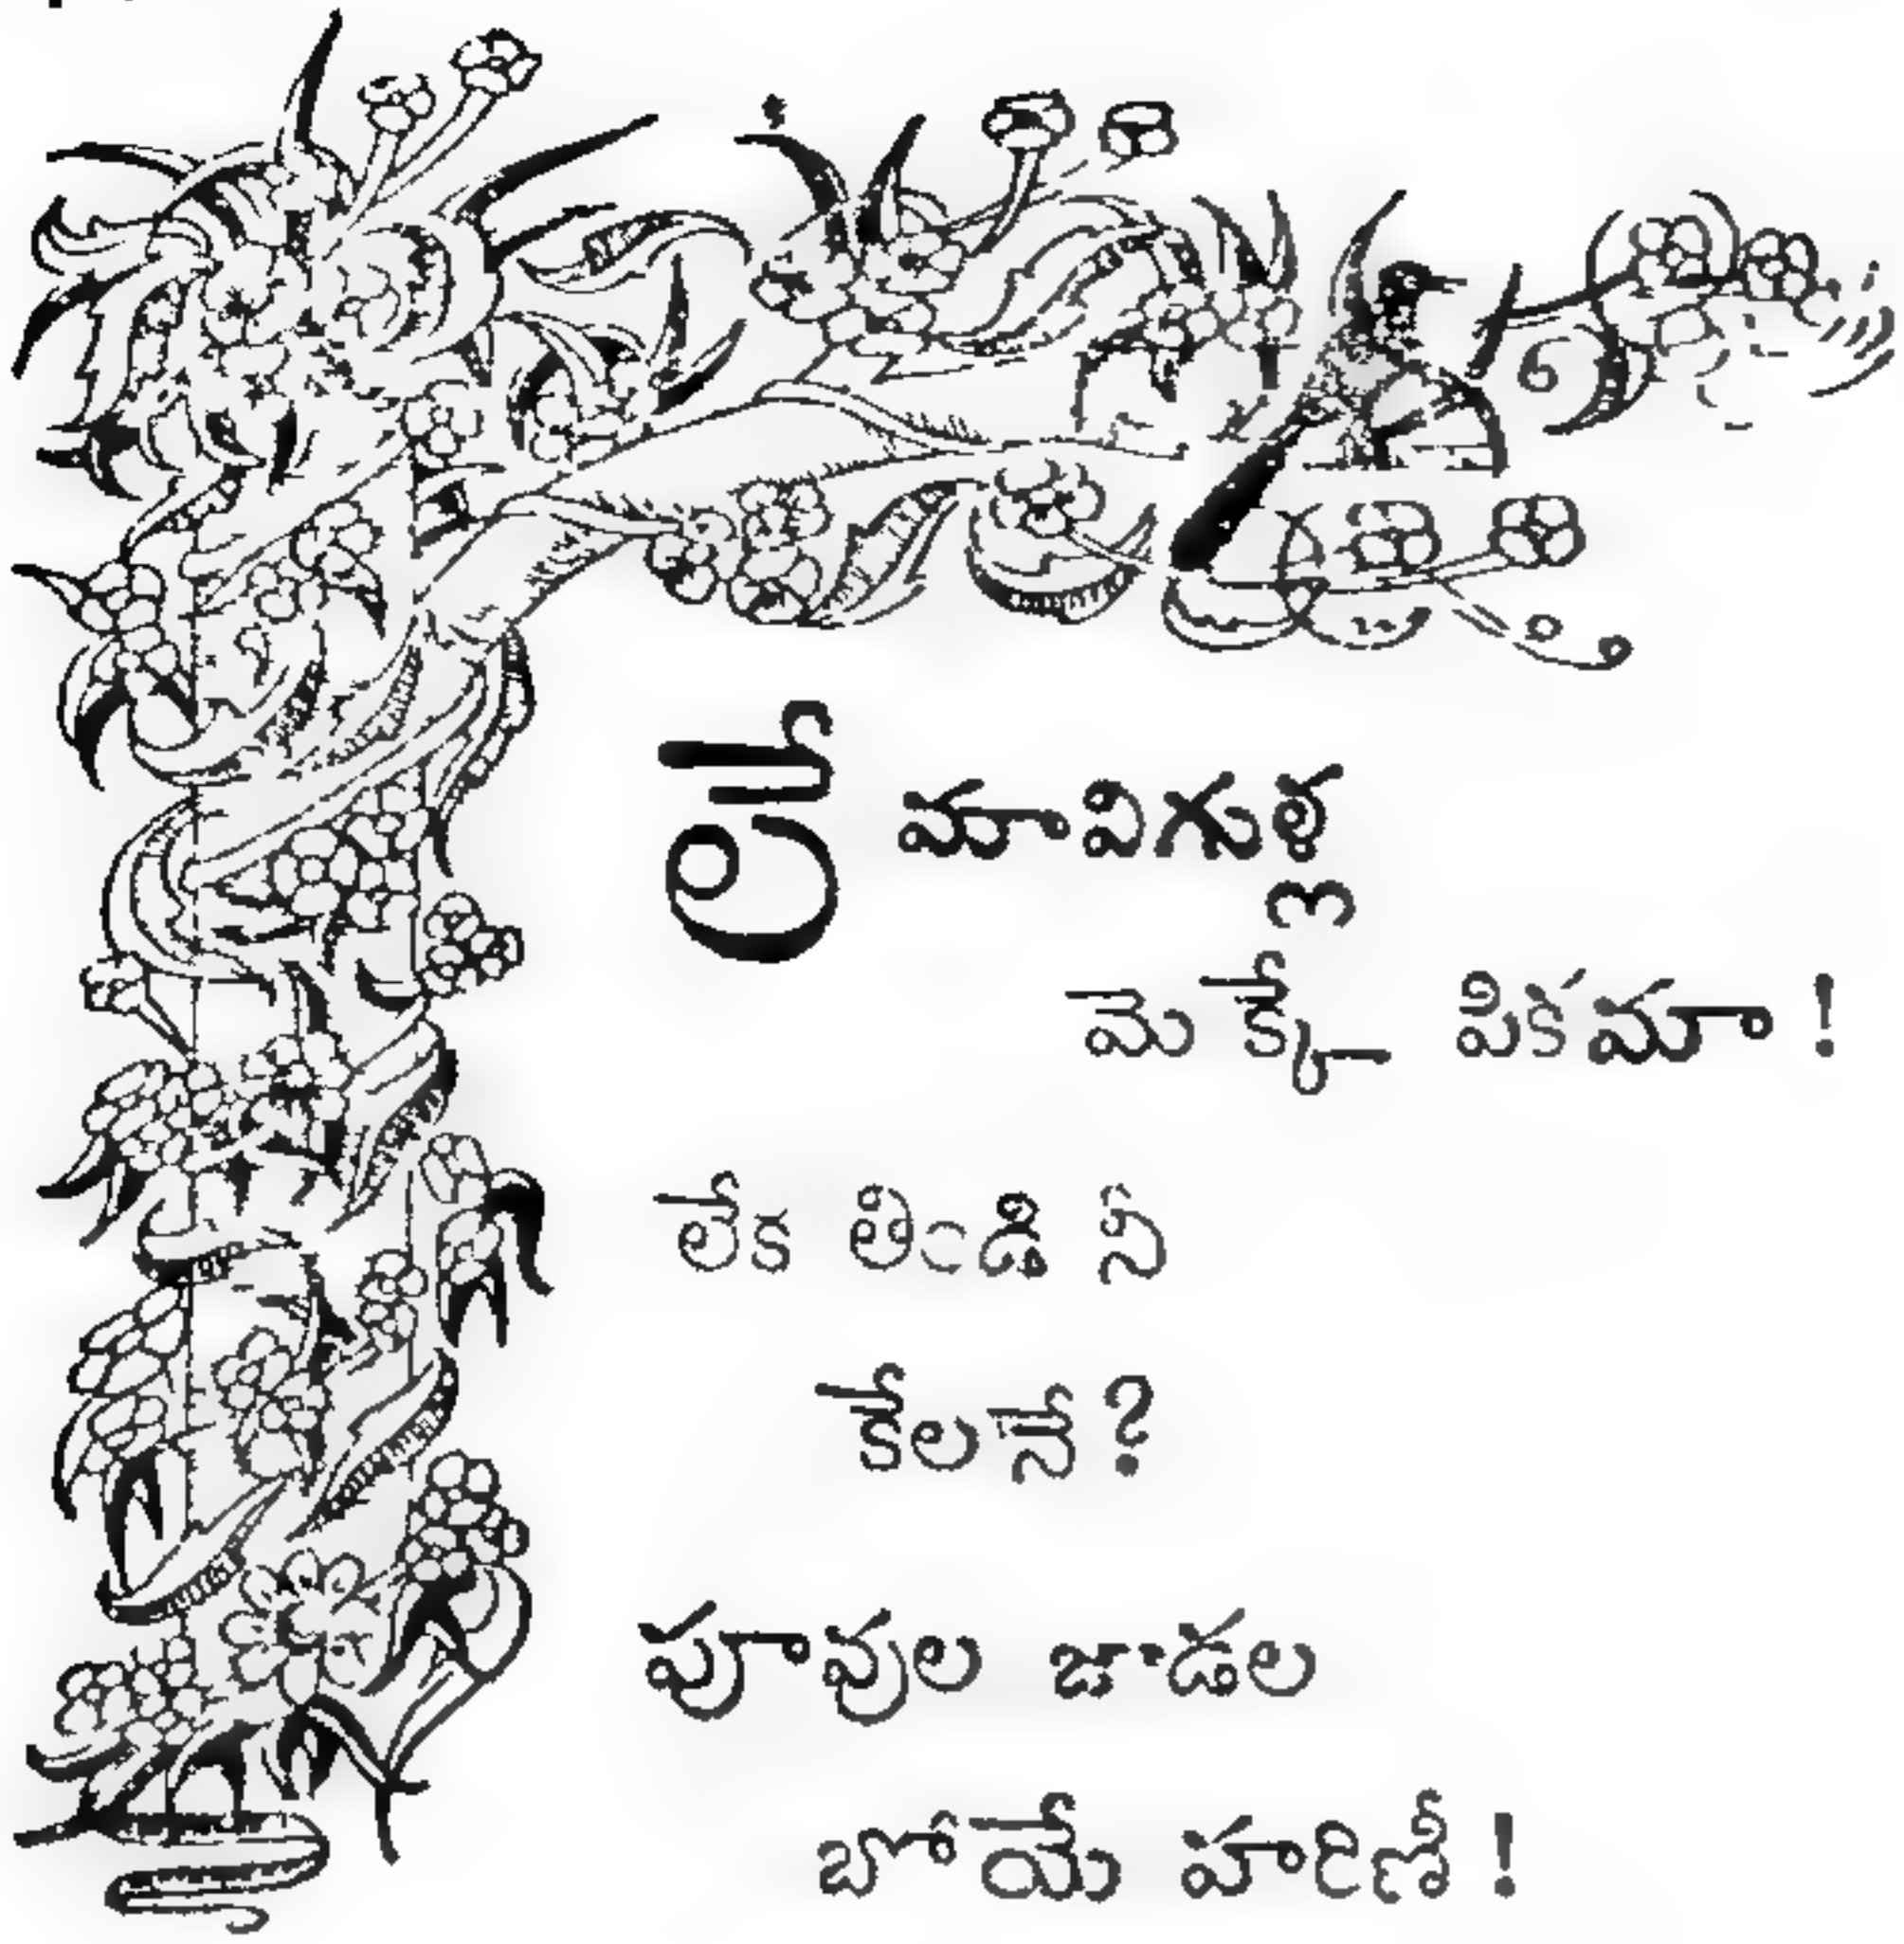 లే మావిగుళ్ల
మెక్కే పికమా !
లేక తిండి నీ
కేలనే ?
పూవుల జాడల
బోయే హరిణీ !